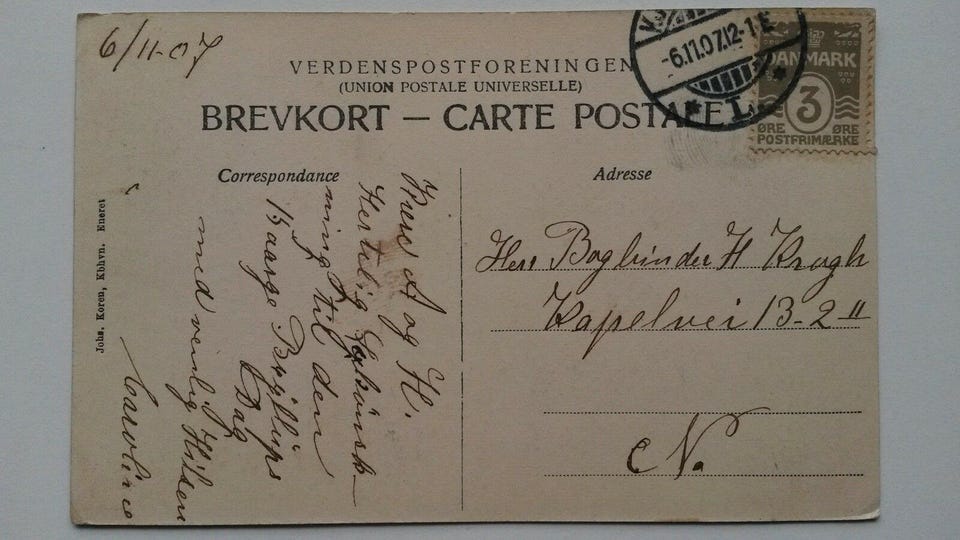 6/11-07
VERDENSPOSTFORENINGEN
(UNION POSTALE UNIVERSELLE)
BREVKORT — CARTE POSTALE
-6.11.07.12-1 E
I.
DANMARK
3
ØRE ØRE
POSTFRIMÆRKE
Correspondance
Kære A og H.
Hertelig Lykønsk-
ning til den
1½ aarge Bryllups
Dag
med venlig Hilsen
Caroline
Adresse
Herr Bogbinder H Krogh
Kapelvei 13-2 II
N.
Johs. Koren, Kbhvn. Eneret